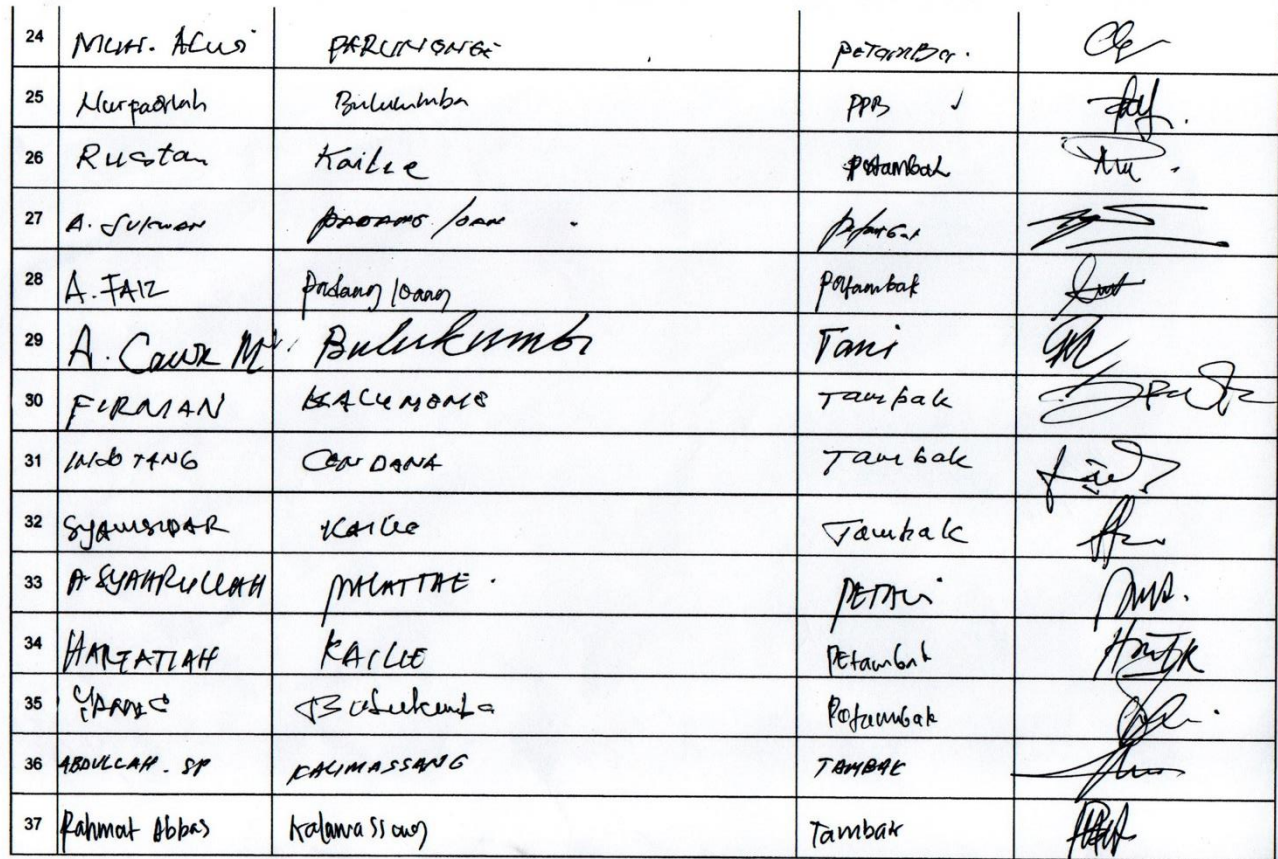 24 MUH. ALWI PARUNTONGE PETAMBAK.
25 Nurfadilah Bulukumba PPB ✓
26 Rustan Kailie petambak
27 A. SUKMAN PADANG loang
28 A. FAIZ padang loang petambak
29 A. Bulukumba Tani
30 FIRMAN KALUMEME Tambak
31 INDO TANG CENDANA Tambak
32 SYAMSIDAR KAILIE Tambak
33 A SYAHRULLAH MALATTAE. PETANI
34 HARIATIAH KAILIE PEtambak
35 Bulukumba Petambak
36 ABDULLAH. SP KALIMASSANG TAMBAK
37 Rahmat Abbas Kalamassang Tambak